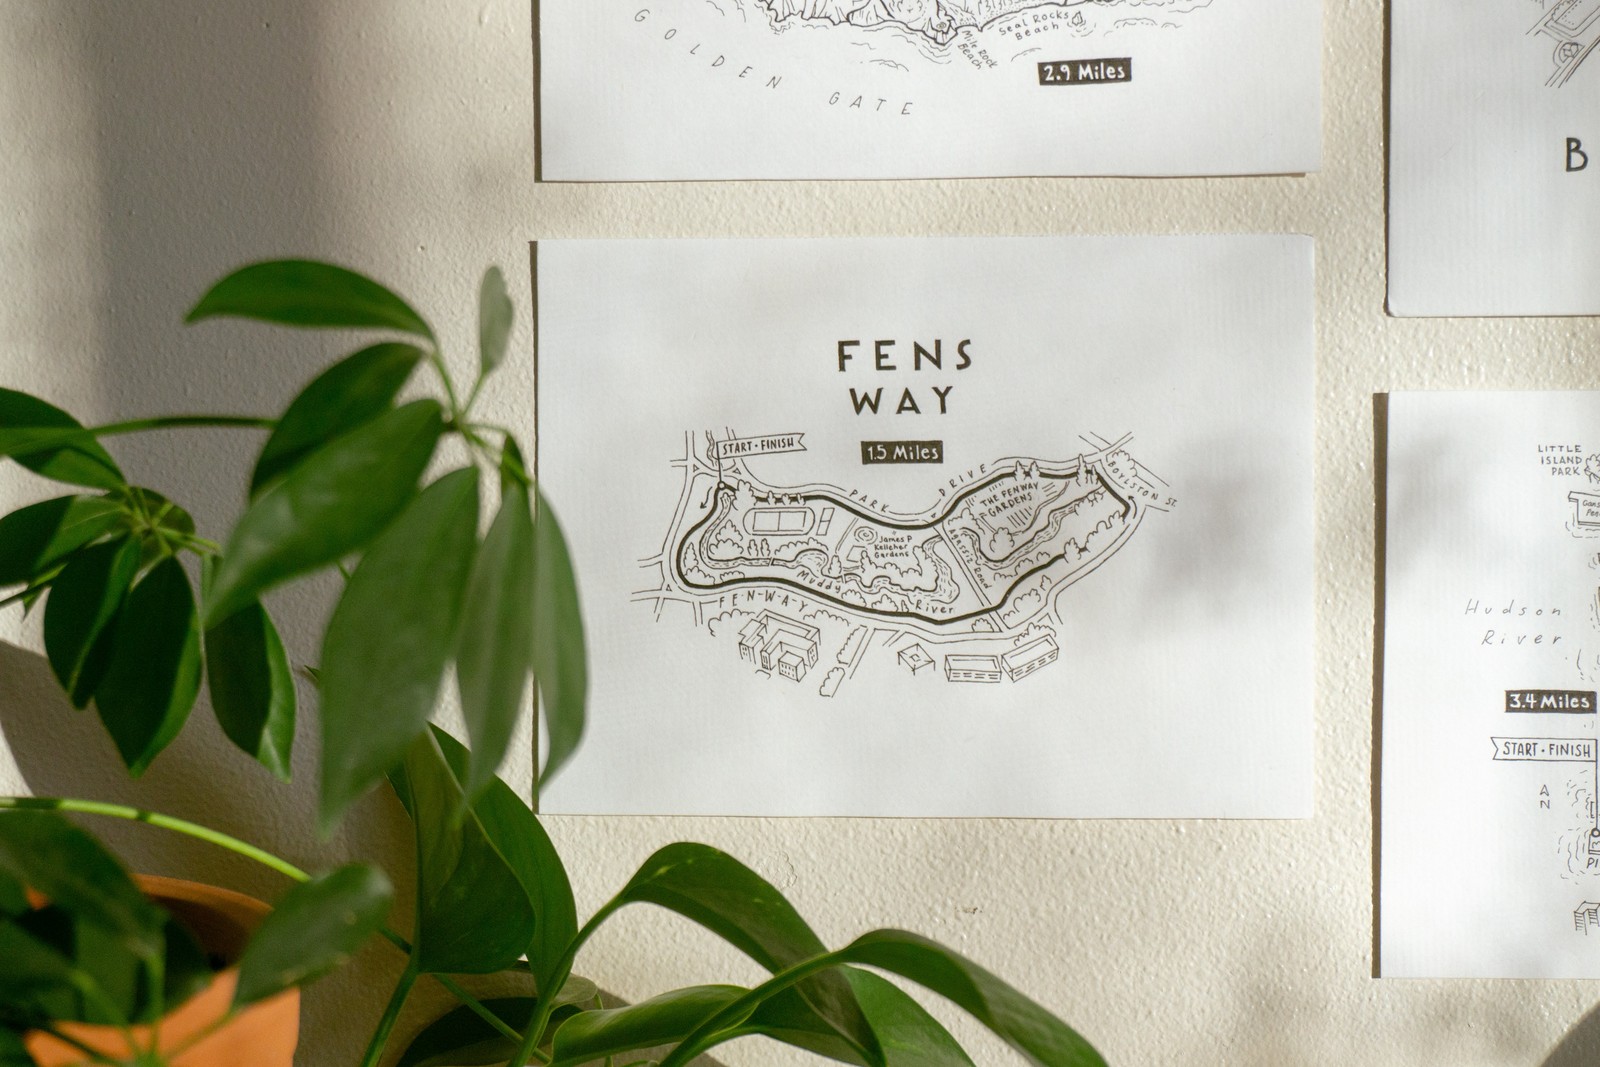 GOLDEN GATE
Seal Rocks
Beach
Mile Rock
Beach
2.9 Miles
B
FENS
WAY
1.5 Miles
START • FINISH
PARK DRIVE
BOYLSTON ST.
THE FENWAY
GARDENS
James P
Kelleher
Gardens
Agassiz Road
Muddy River
FENWAY
LITTLE
ISLAND
PARK
Hudson
River
3.4 Miles
START • FINISH